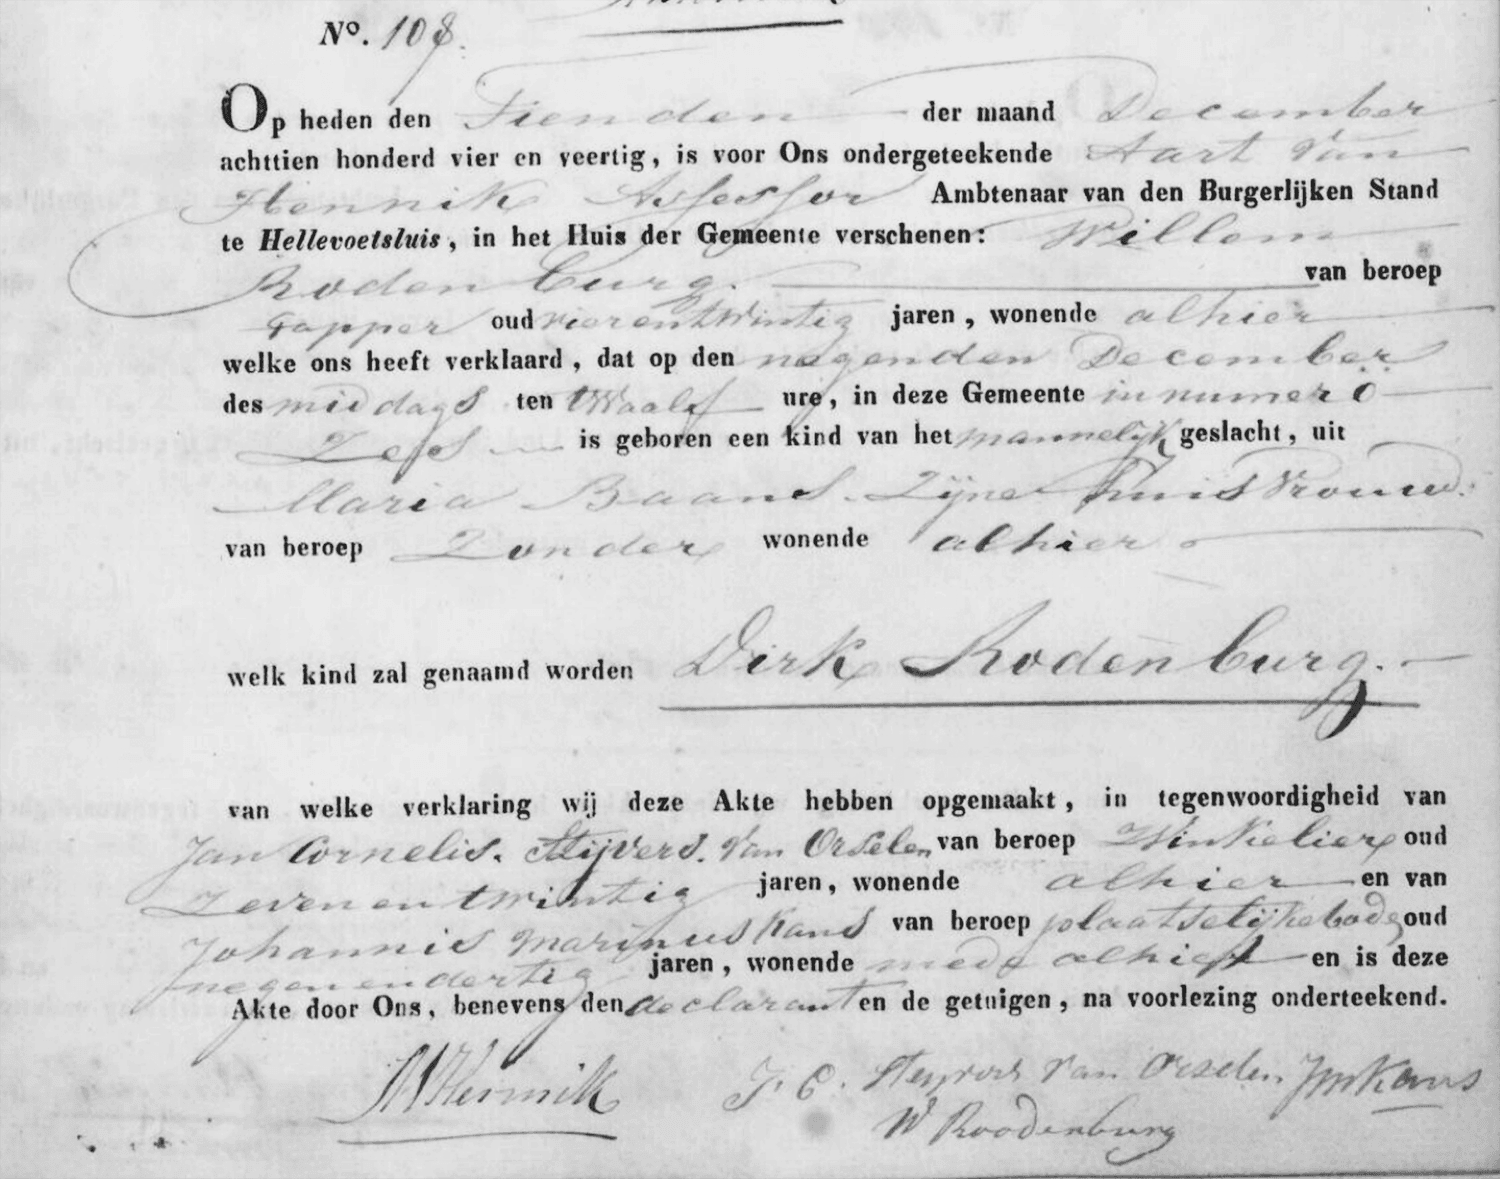 Nº. 108.
Op heden den Tienden der maand December
achttien honderd vier en veertig, is voor Ons ondergeteekende Aart van
Hennik Assessor Ambtenaar van den Burgerlijken Stand
te Hellevoetsluis, in het Huis der Gemeente verschenen: Willem
Rodenburg. van beroep
Tapper oud vierentwintig jaren, wonende alhier
welke ons heeft verklaard, dat op den negenden December
des middags ten twaalf ure, in deze Gemeente in numero
Zes is geboren een kind van het mannelijk geslacht, uit
Maria Baans. Zijne Huisvrouw.
van beroep Zonder wonende alhier
welk kind zal genaamd worden Dirk Rodenburg.
van welke verklaring wij deze Akte hebben opgemaakt, in tegenwoordigheid van
Jan Cornelis. Stijvers. van Orselen van beroep Winkelier oud
Zevenentwintig jaren, wonende alhier en van
Johannis Marinus Kans van beroep plaatselijkebode oud
negenendertig jaren, wonende mede alhier en is deze
Akte door Ons, benevens den declarant en de getuigen, na voorlezing onderteekend.
AVHennik J. C. Steyvers van Orselen. JMKans
W Roodenburg